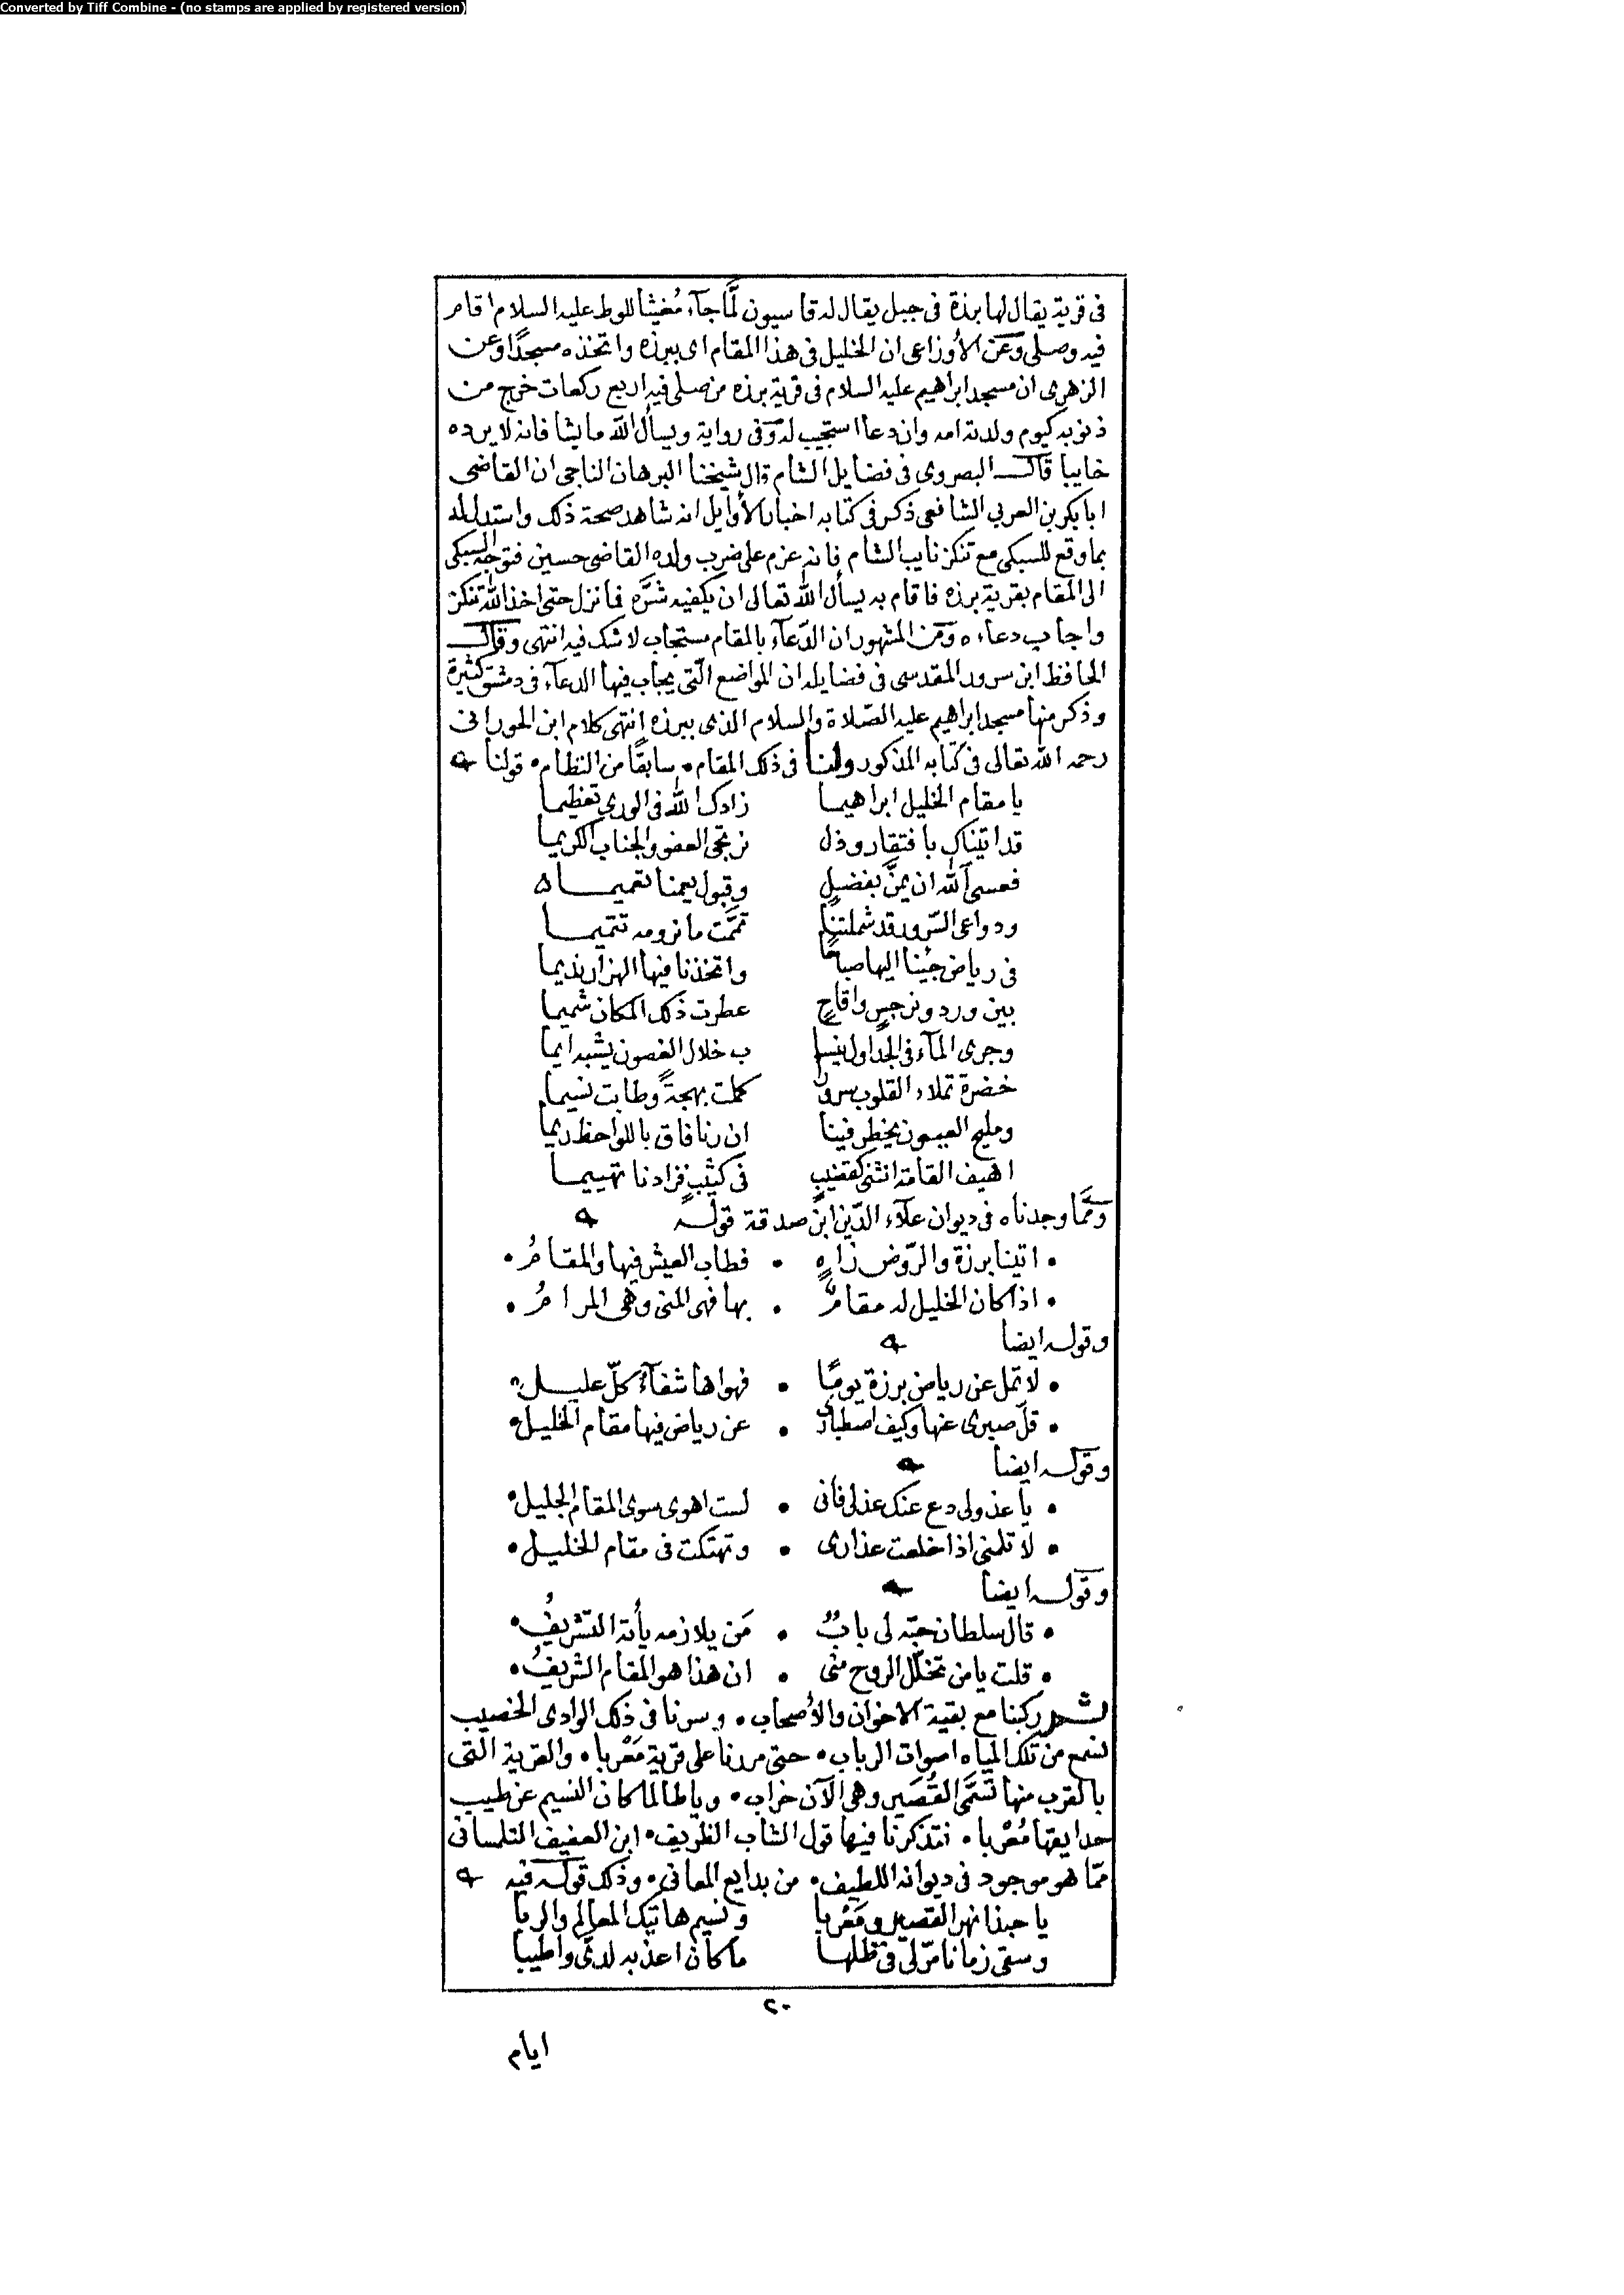 Converted by Tiff Combine - (no stamps are applied by registered version)
فى قرية يقال لها برزة فى جبل يقال له قاسيون لمَّا جآء مُغيثًا للوط عليه السلام اقام
فيه وصلى وعَن الأوزاعى ان الخليل فى هذا المقام اى ببرزه واتخذه مسجدًا وعن
الزهرى ان مسجد ابراهيم عليه السلام فى قرية برزه من صلى فيه اربع ركعات خرج من
ذنوبه كيوم ولدته امه وان دعا استجيب له وفى رواية ويسأل الله ما يشا فانه لا يرده
خايبا قال البصروى فى فضايل الشام قال شيخنا البرهان الناجى ان القاضى
ابا بكر بن العربى الشافعى ذكر فى كتابه اخبار الأوايل انه شاهد صحة ذلك واستدل له
بما وقع للسبكى مع تنكز نايب الشام فانه عزم على ضرب ولده القاضى حسين فتوجه السبكى
الى المقام بقرية برزه فاقام به يسأل الله تعالى ان يكفيه شرَّه فما نزل حتى اخذ الله تنكز
واجاب دعاءه ومن المشهور ان الدّعآء بالمقام مستجاب لا شك فيه انتهى وقال
الحافظ ابن سرور المقدسى فى فضايله ان المواضع الّتى يجاب فيها الدعآء فى دمشق كثيرة
وذكر منها مسجد ابراهيم عليه الصّلاة والسلام الذى ببرزه انتهى كلام ابن الحورانى
رحمه الله تعالى فى كتابه المذكور ولنا فى ذلك المقام • سابقًا من النظام • قولنا
يا مقام الخليل ابراهيما زادك الله فى الورى تعظيما
قد اتيناك بافتقار وذل نرتجى العفو والجناب الكريما
فعسى الله ان يمنَّ بفضلٍ وقبول يعمنا تعميما
ودواعى السّرور قد شملتنا تمَّمت ما نرومه تتميما
فى رياض جئنا اليها صباحًا واتخذنا فيها الهزار نديما
بين ورد ونرجسٍ واقاحٍ عطرت ذلك المكان شميما
وجرى المآء فى الجداول ينسا ب خلال الغصون يشبه ايما
خضرة تملاء القلوب سرورًا كملت بهجةً وطابت نسيما
ومليح العيون يخطر فينا ان رنا فاق باللواحظ ريما
اهيف القامة انثنى كقضيبٍ فى كثيبٍ فزادنا تهييما
وممَّا وجدناه فى ديوان علآء الدّين ابن صدقة قوله
• اتينا برزة والرّوض زاهٍ • فطاب العيش فيها والمقامُ •
• اذا كان الخليل له مقامٌ • بها فهى المنى وهى المرامُ •
وقوله ايضا
• لا تمل عن رياض برزة يومًا • فهواها شفآء كلّ عليل •
• قلّ صبرى عنها وكيف اصطبارى • عن رياض فيها مقام الخليل •
وقوله ايضا
• يا عذولى دع عنك عذلى فانى • لست اهوى سوى المقام الجليل •
• لا تلمنى اذا خلعت عذارى • وتهتكت فى مقام الخليل •
وقوله ايضا
• قال سلطان حبّه لى بابٌ • مَن يلازمه يأته التشريفُ •
• قلت يا من تخلّل الروح منى • ان هذا هو المقام الشريفُ •
ثم ركبنا مع بقية الاخوان والأصحاب • وسرنا فى ذلك الوادى الخصيب
نسمع من تلك المياه اصوات الرباب • حتى مررنا على قرية مَعْربا • والقرية التى
بالقرب منها تسمَّى القُصَير وهى الآن خراب • ويا طالما كان النسيم عن طيب
حدايقها مُعْربا • فتذكرنا فيها قول الشاب الظريف • ابن العفيف التلمسانى
ممّا هو موجود فى ديوانه اللطيف • من بدايع المعانى • وذلك قوله فيه
يا حبذا نهر القصير ومَعْربا ونسيم هاتيك المعالم والربا
وسقى زمانا مرّ لى فى ظلها ما كان اعذبه لدىَّ واطيبا
٢٠
ايام